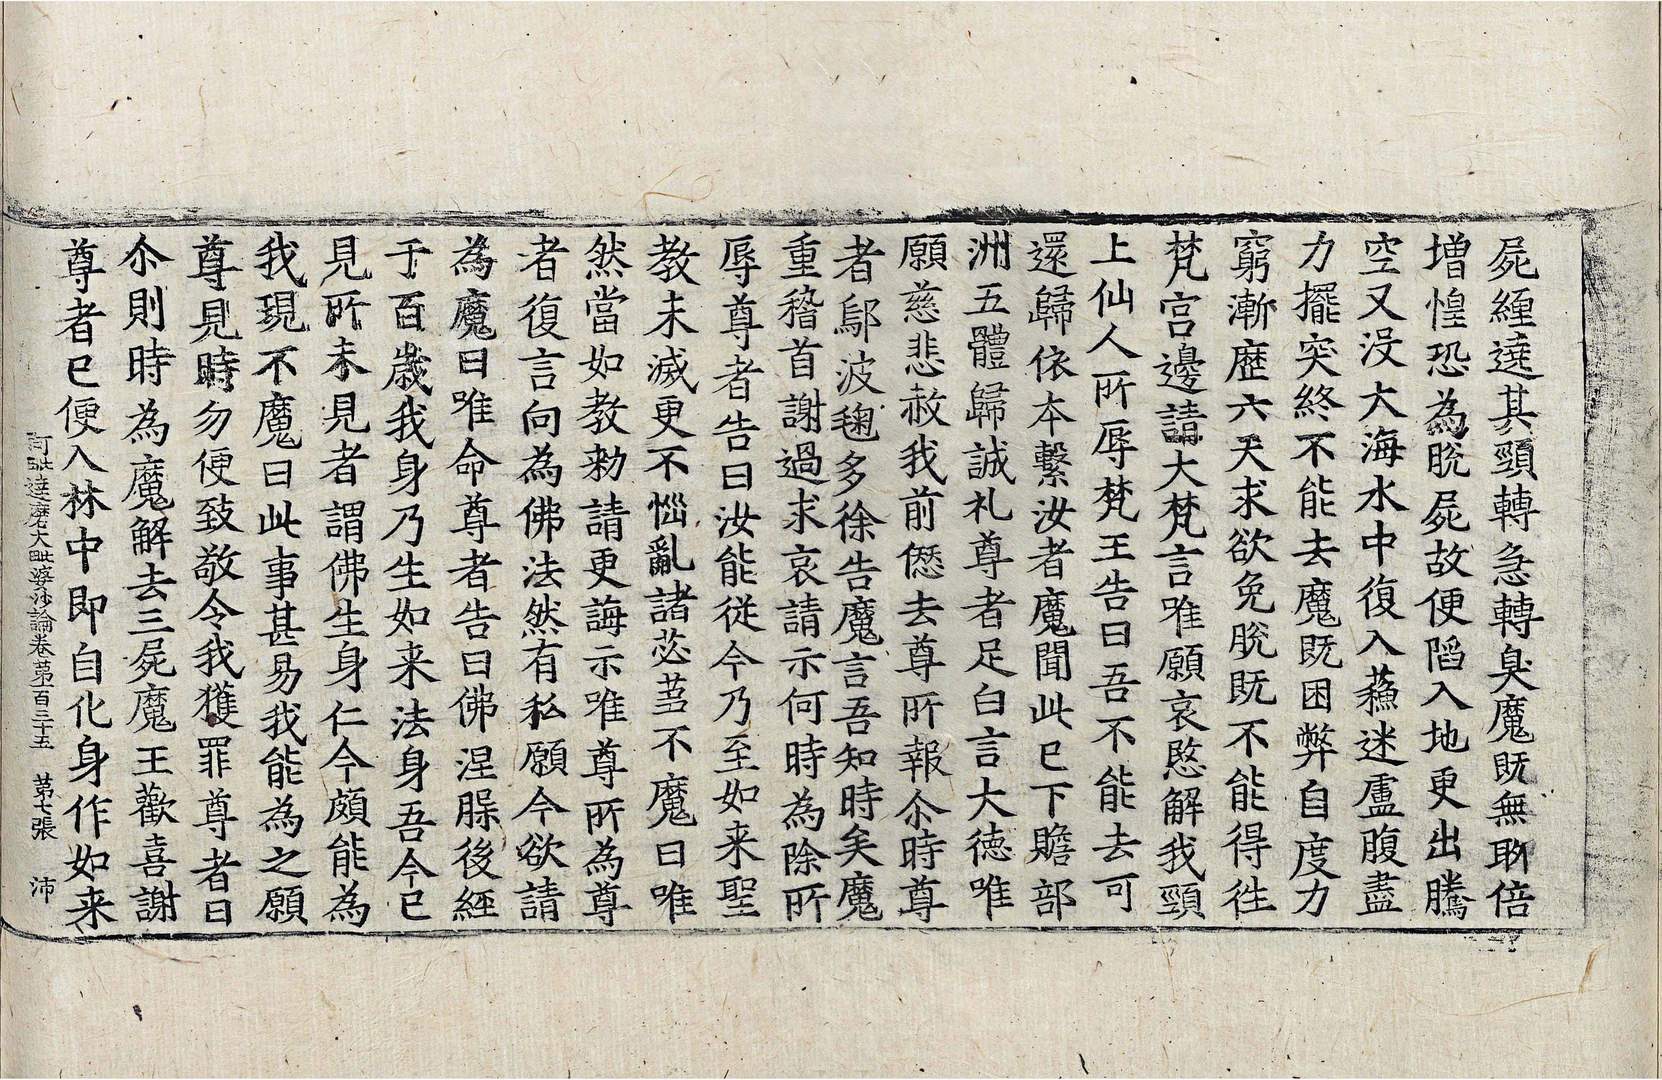 屍纏遶其頸轉急轉臭魔既無聊倍
增惶恐為脫屍故便陷入地更出騰
空又没大海水中復入蘓迷盧腹盡
力擺突終不能去魔既困弊自度力
窮漸歷六天求欲免脫既不能得徃
梵宮邊請大梵言唯願哀愍解我頸
上仙人所辱梵王告曰吾不能去可
還歸依本繫汝者魔聞此已下贍部
洲五體歸誠礼尊者足白言大德唯
願慈悲赦我前僁去尊所報尒時尊
者鄔波毱多徐告魔言吾知時矣魔
重稽首謝過求哀請示何時為除所
辱尊者告曰汝能従今乃至如来聖
教未滅更不惱亂諸苾芻不魔曰唯
然當如教勑請更誨示唯尊所為尊
者復言向為佛法然有私願今欲請
為魔曰唯命尊者告曰佛涅槃後經
于百歲我身乃生如来法身吾今已
見所未見者謂佛生身仁今頗能為
我現不魔曰此事甚易我能為之願
尊見時勿便致敬令我獲罪尊者曰
尒則時為魔解去三屍魔王歡喜謝
尊者已便入林中即自化身作如来
阿毗達磨大毗婆沙論卷第一百三十五 第七張 沛